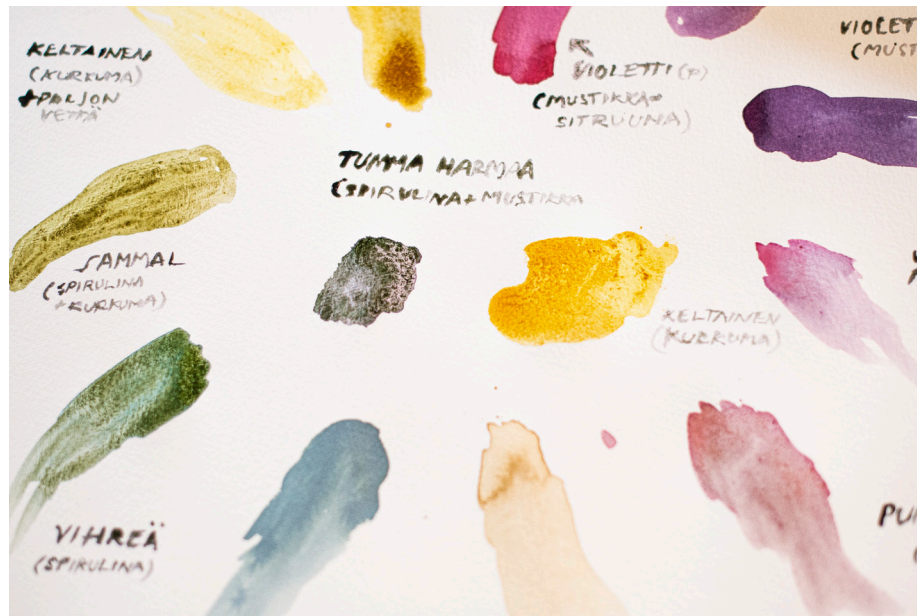 KELTAINEN
(KURKUMA)
+PALJON
VETTÄ
VIOLETTI (P)
(MUSTIKKA+
SITRUUNA)
VIOLETT
(MUST
TUMMA HARMAA
(SPIRULINA+MUSTIKKA
SAMMAL
(SPIRULINA
+KURKUMA)
KELTAINEN
(KURKUMA)
VIHREÄ
(SPIRULINA)
PU